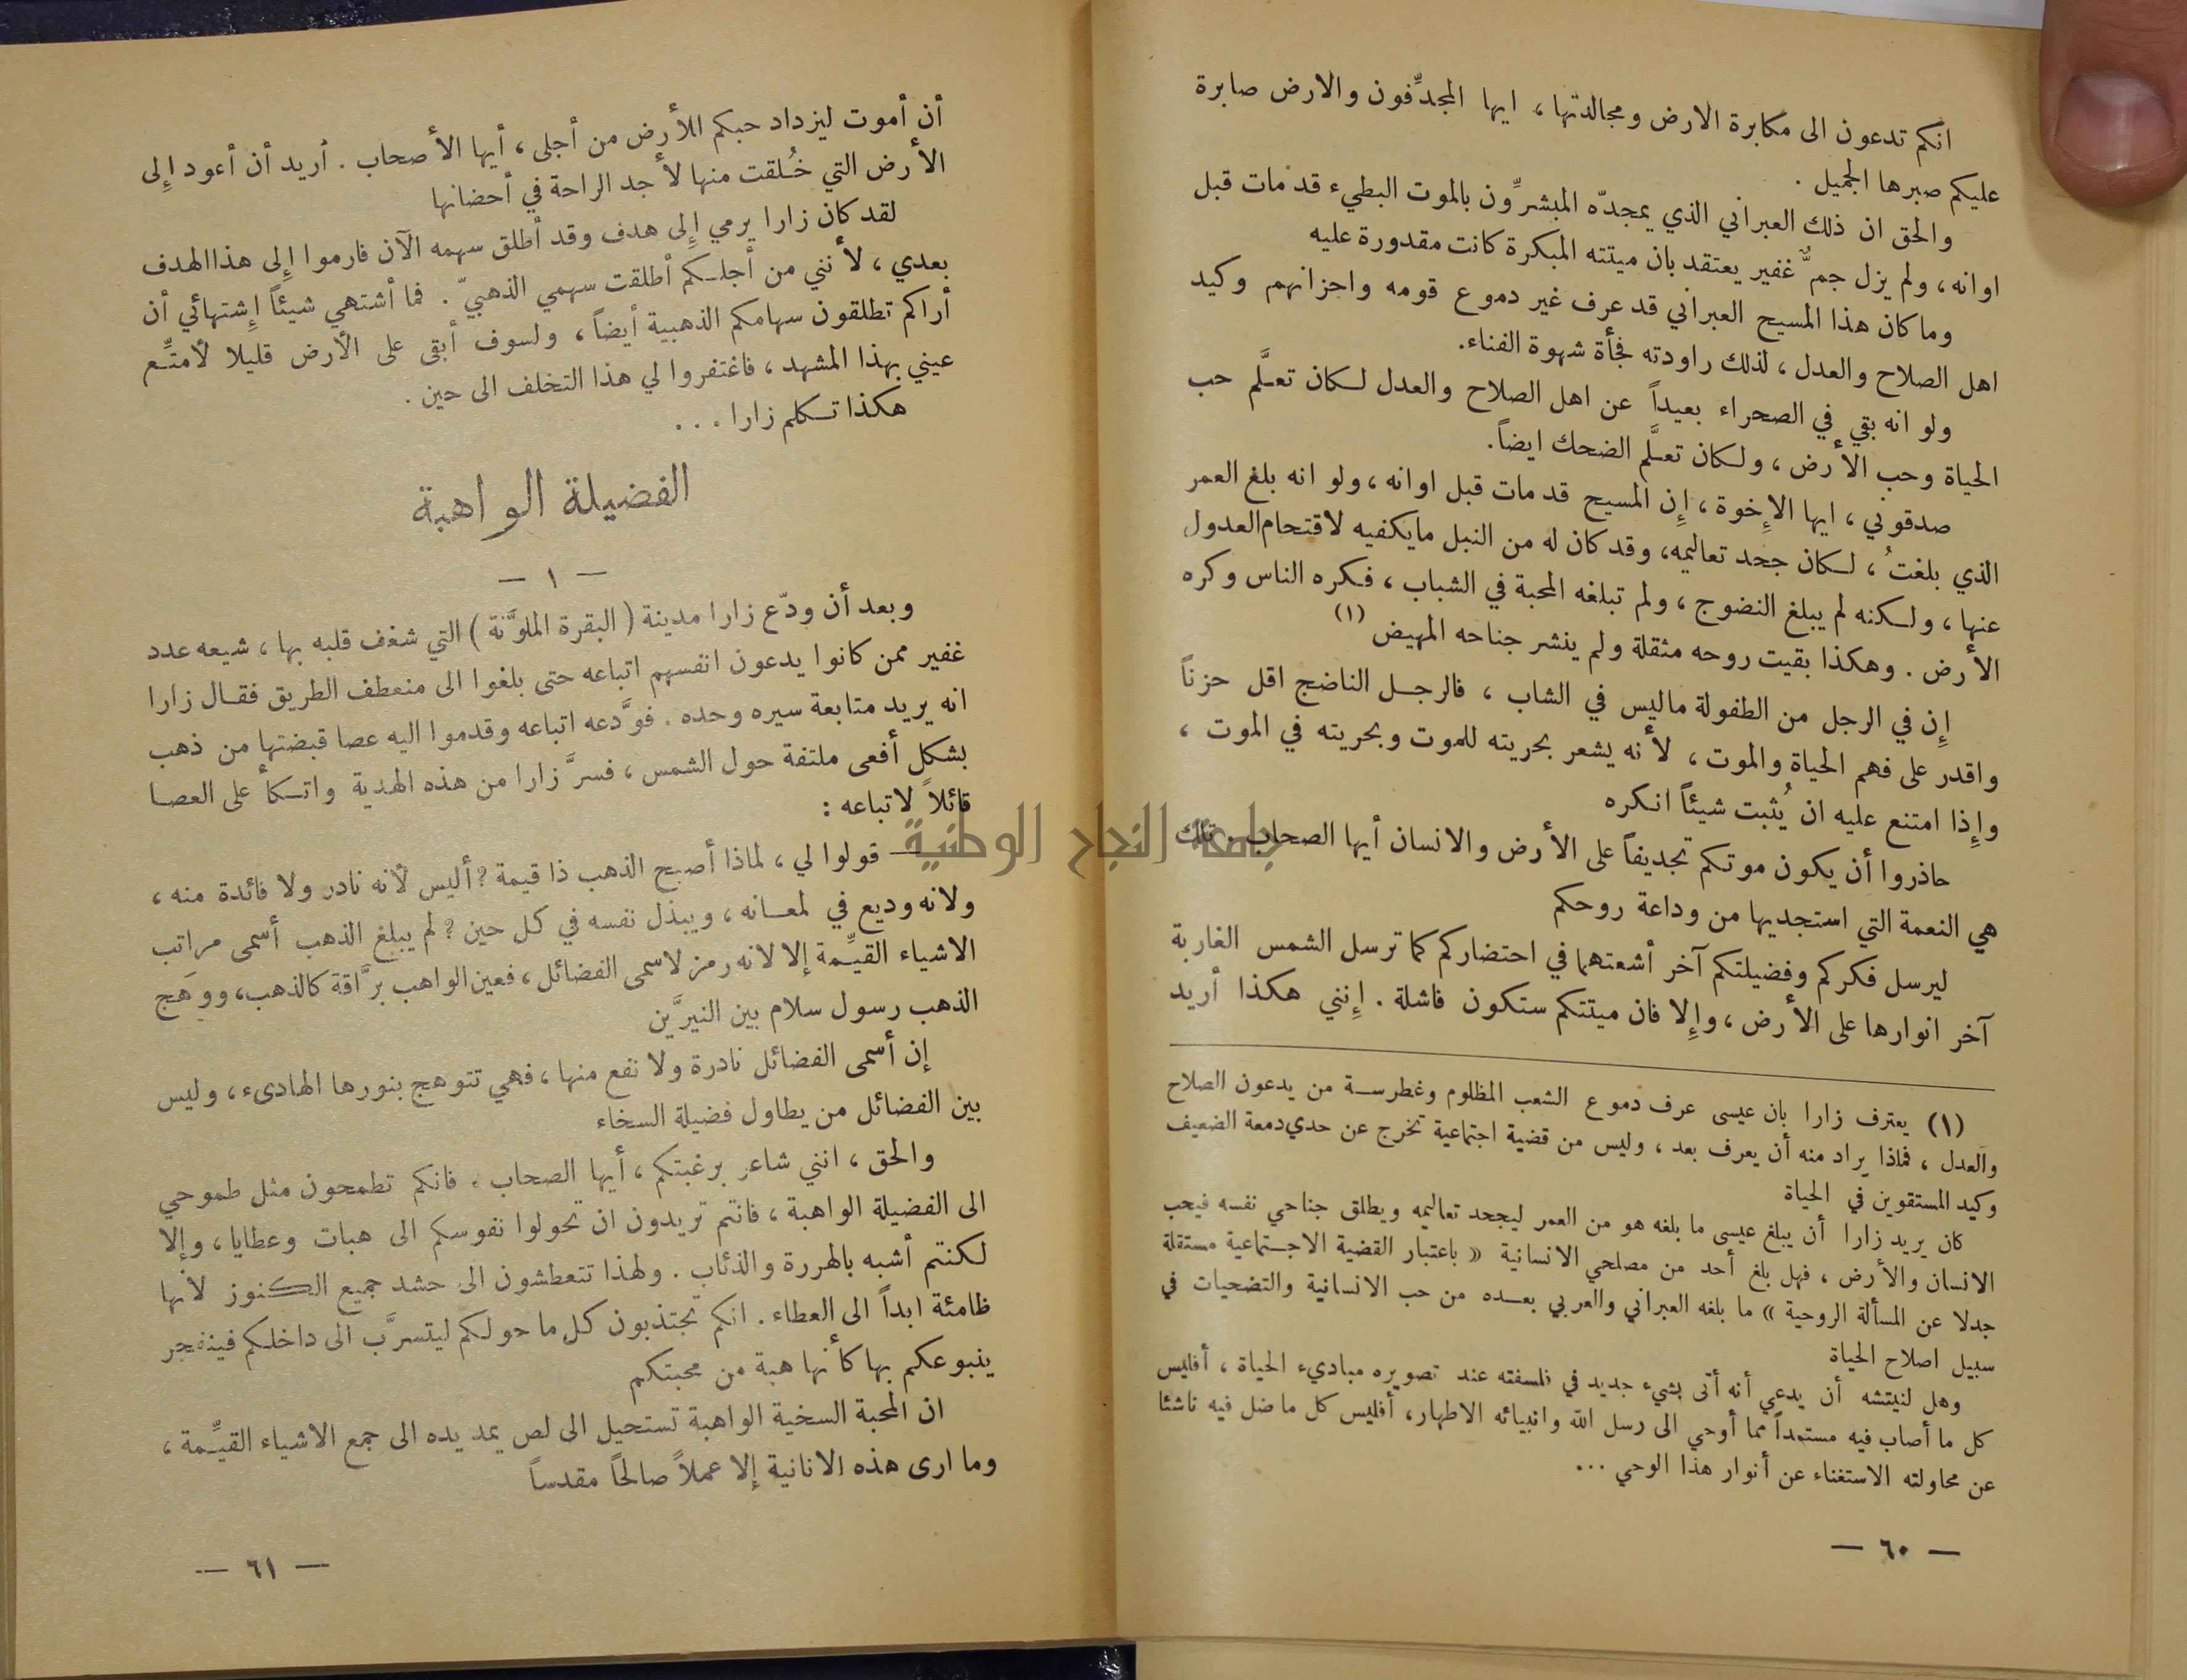 انكم تدعون الى مكابرة الارض ومجالدتها ، ايها المجدِّفون والارض صابرة
عليكم صبرها الجميل .
والحق ان ذلك العبراني الذي يمجدّه المبشرِّون بالموت البطيء قد مات قبل
اوانه ، ولم يزل جمٌّ غفير يعتقد بان ميتته المبكرة كانت مقدورة عليه
وما كان هذا المسيح العبراني قد عرف غير دموع قومه واحزانهم وكيد
اهل الصلاح والعدل ، لذلك راودته فجأة شهوة الفناء.
ولو انه بقي في الصحراء بعيداً عن اهل الصلاح والعدل لكان تعلَّم حب
الحياة وحب الأرض ، ولكان تعلَّم الضحك ايضاً.
صدقوني ، ايها الإخوة ، إن المسيح قد مات قبل اوانه ، ولو انه بلغ العمر
الذي بلغتُ ، لكان جحد تعاليمه، وقد كان له من النبل مايكفيه لاقتحام العدول
عنها ، ولكنه لم يبلغ النضوج ، ولم تبلغه المحبة في الشباب ، فكره الناس وكره
الأرض . وهكذا بقيت روحه مثقلة ولم ينشر جناحه المهيض (١)
إن في الرجل من الطفولة ماليس في الشاب ، فالرجل الناضج اقل حزناً
واقدر على فهم الحياة والموت ، لأنه يشعر بحريته للموت وبحريته في الموت ،
وإذا امتنع عليه ان يُثبت شيئاً انكره
حاذروا أن يكون موتكم تجديفاً على الأرض والانسان أيها الصحاب . تلك
هي النعمة التي استجديها من وداعة روحكم
ليرسل فكركم وفضيلتكم آخر أشعتهما في احتضاركم كما ترسل الشمس الغاربة
آخر انوارها على الأرض ، وإلا فان ميتتكم ستكون فاشلة . إنني هكذا أريد
(١) يعترف زارا بان عيسى عرف دموع الشعب المظلوم وغطرسة من يدعون الصلاح
والعدل ، فماذا يراد منه أن يعرف بعد ، وليس من قضية اجتماعية تخرج عن حدي دمعة الضعيف
وكيد المستقوين في الحياة
كان يريد زارا أن يبلغ عيسى ما بلغه هو من العمر ليجحد تعاليمه ويطلق جناحي نفسه فيحب
الانسان والأرض ، فهل بلغ أحد من مصلحي الانسانية « باعتبار القضية الاجتماعية مستقلة
جدلا عن المسألة الروحية » ما بلغه العبراني والعربي بعده من حب الانسانية والتضحيات في
سبيل اصلاح الحياة
وهل لنيتشه أن يدعي أنه أتى بشيء جديد في فلسفته عند تصويره مباديء الحياة ، أفليس
كل ما أصاب فيه مستمداً مما أوحي الى رسل الله وانبيائه الاطهار، أفليس كل ما ضل فيه ناشئا
عن محاولته الاستغناء عن أنوار هذا الوحي ...
— ٦٠ —
أن أموت ليزداد حبكم للأرض من أجلي ، أيها الأصحاب . أريد أن أعود إلى
الأرض التي خُلقت منها لأجد الراحة في أحضانها
لقد كان زارا يرمي إلى هدف وقد أطلق سهمه الآن فارموا إلى هذا الهدف
بعدي ، لأنني من أجلكم أطلقت سهمي الذهبيّ . فما أشتهي شيئاً إشتهائي أن
أراكم تطلقون سهامكم الذهبية أيضاً ، ولسوف أبقى على الأرض قليلا لأمتِّع
عيني بهذا المشهد ، فاغتفروا لي هذا التخلف الى حين .
هكذا تكلم زارا . . .
الفضيلة الواهبة
— ١ —
وبعد أن ودّع زارا مدينة ( البقرة الملوَّنة ) التي شغف قلبه بها ، شيعه عدد
غفير ممن كانوا يدعون انفسهم اتباعه حتى بلغوا الى منعطف الطريق فقال زارا
انه يريد متابعة سيره وحده . فوَّدعه اتباعه وقدموا اليه عصا قبضتها من ذهب
بشكل أفعى ملتفة حول الشمس ، فسرَّ زارا من هذه الهدية واتكأ على العصا
قائلاً لاتباعه :
— قولوا لي ، لماذا أصبح الذهب ذا قيمة ؟ أليس لأنه نادر ولا فائدة منه ،
ولانه وديع في لمعانه ، ويبذل نفسه في كل حين ؟ لم يبلغ الذهب أسمى مراتب
الاشياء القيِّمة إلا لانه رمز لاسمى الفضائل ، فعين الواهب برَّاقة كالذهب، ووَهَج
الذهب رسول سلام بين النيرَّين
إن أسمى الفضائل نادرة ولا نفع منها ، فهي تتوهج بنورها الهادىء ، وليس
بين الفضائل من يطاول فضيلة السخاء
والحق ، انني شاعر برغبتكم ، أيها الصحاب . فانكم تطمحون مثل طموحي
الى الفضيلة الواهبة ، فانتم تريدون ان تحولوا نفوسكم الى هبات وعطايا ، وإلا
لكنتم أشبه بالهررة والذئاب . ولهذا تتعطشون الى حشد جميع الكنوز لأنها
ظامئة ابداً الى العطاء . انكم تجتذبون كل ما حولكم ليتسرَّب الى داخلكم فينفجر
ينبوعكم بها كأنها هبة من محبتكم
ان المحبة السخية الواهبة تستحيل الى لص يمد يده الى جمع الاشياء القيِّمة ،
وما ارى هذه الانانية إلا عملاً صالحاً مقدساً
— ٦١ —
جامعة النجاح الوطنية